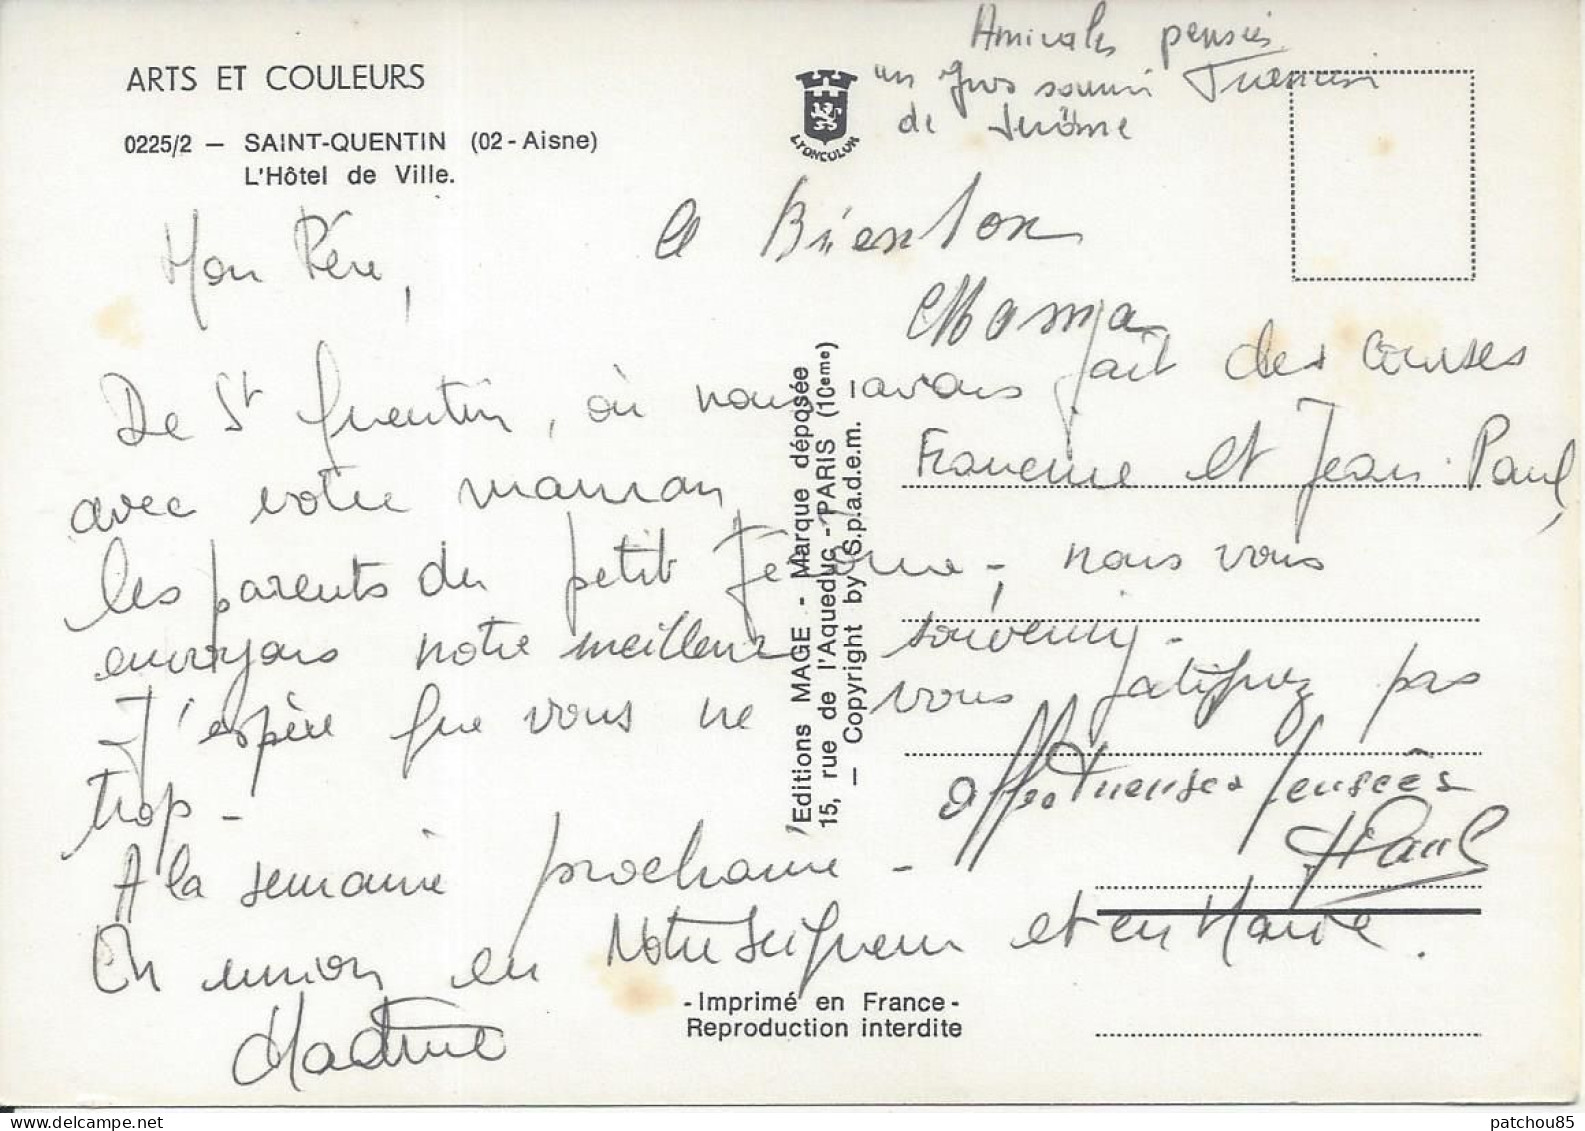 ARTS ET COULEURS
0225/2 — SAINT-QUENTIN (02-Aisne)
L'Hôtel de Ville.
LYONCOLOR
Amicales pensées
un gros sourire
de Jérôme
a Bientôt
Mon Père,
De St Quentin, où nous avons fait des courses
avec votre maman Francine et Jean Paul,
les parents du petit Jérôme, nous vous
envoyons notre meilleur souvenir.
J'espère que vous ne vous fatiguez pas
trop -
affectueuses pensées
Paul
A la semaine prochaine -
En union en Notre Seigneur et en Marie.
Editions MAGE - Marque déposée
15, rue de l'Aqueduc - PARIS (10eme)
— Copyright by S.p.a.d.e.m.
- Imprimé en France -
Reproduction interdite
patchou85